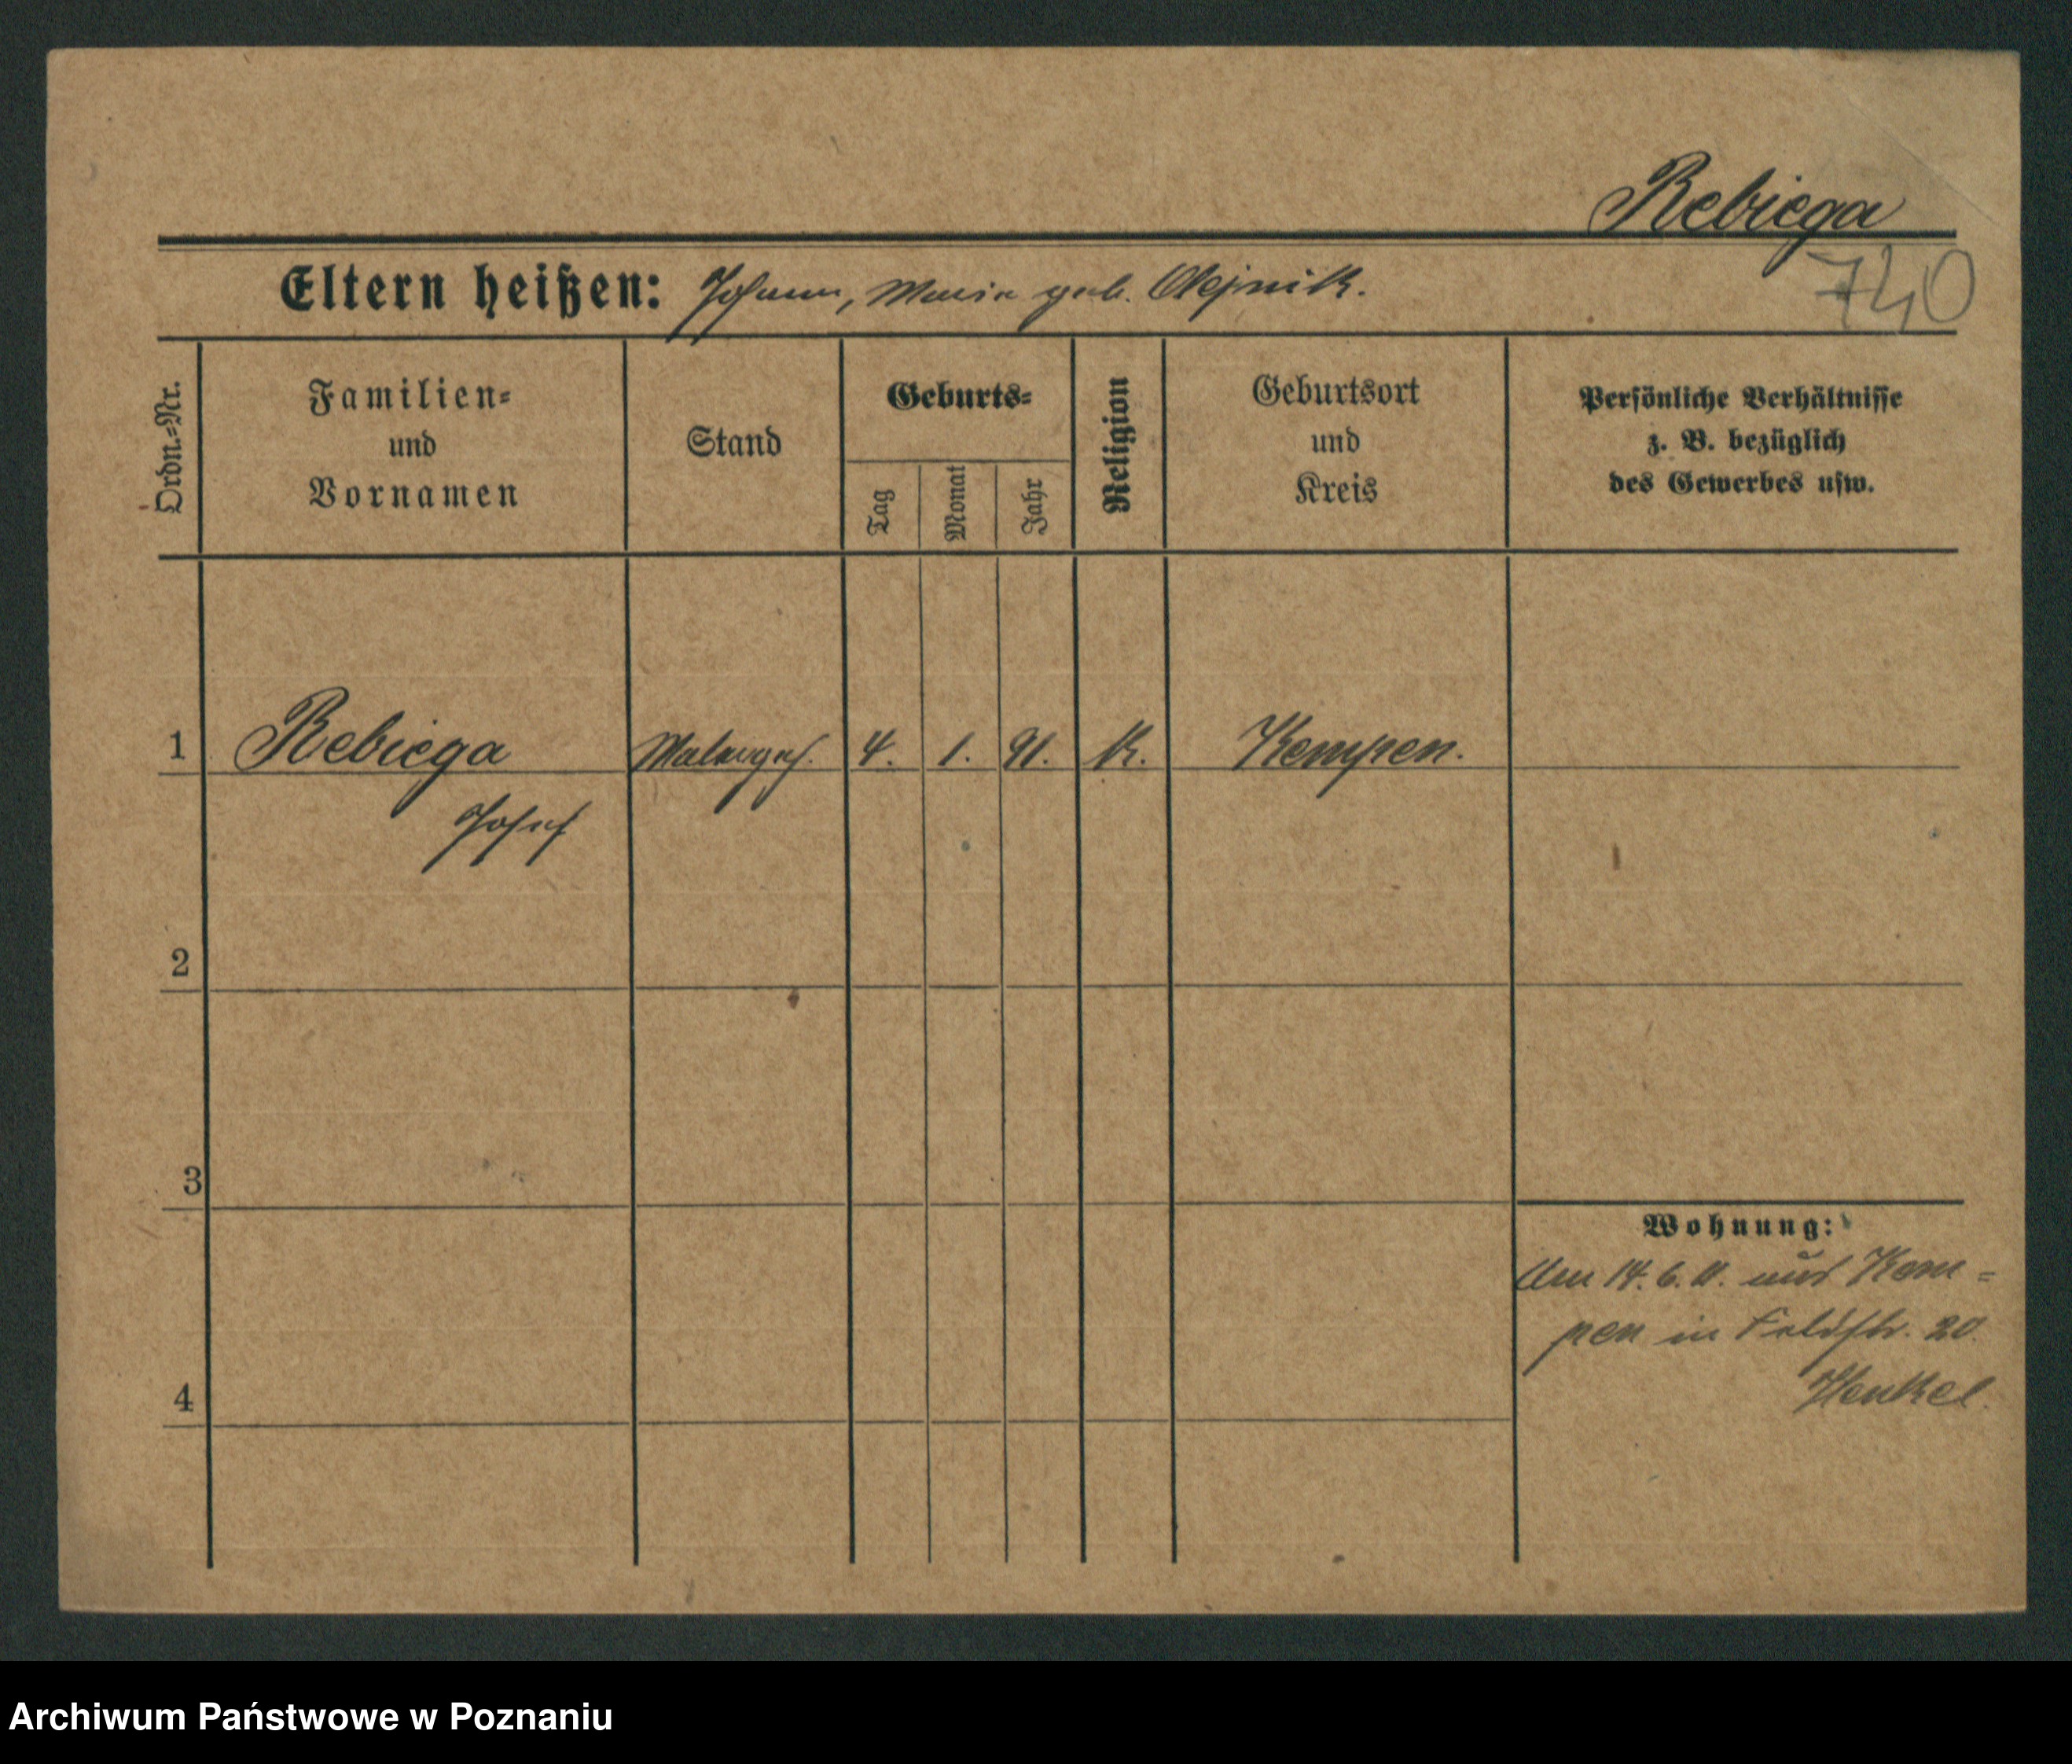 Rebiega
740
Eltern heißen: Johann, Maria geb. Olejnik.
Ordn.=Nr.
Familien=
und
Vornamen
Stand
Geburts=
Tag
Monat
Jahr
Religion
Geburtsort
und
Kreis
Persönliche Verhältnisse
z. B. bezüglich
des Gewerbes usw.
1 Rebiega Malerges. 4. 1. 91. K. Kempen.
Josef
2
3
Wohnung:
Am 14. 6. 11. aus Kem=
pen in Feldstr. 20.
Henkel.
4
Archiwum Państwowe w Poznaniu